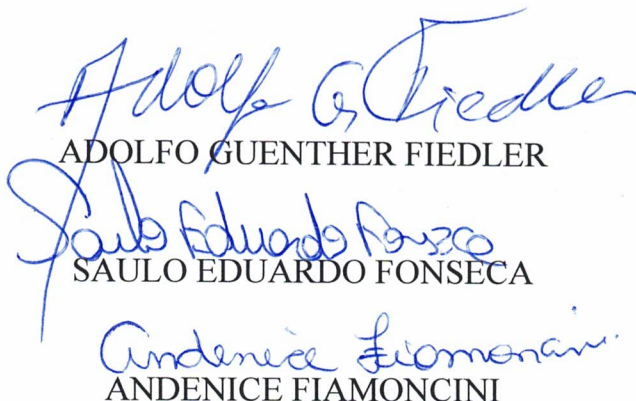 Adolfo G. Fiedler
ADOLFO GUENTHER FIEDLER
Saulo Eduardo Fonseca
SAULO EDUARDO FONSECA
Andenice Fiamoncini
ANDENICE FIAMONCINI